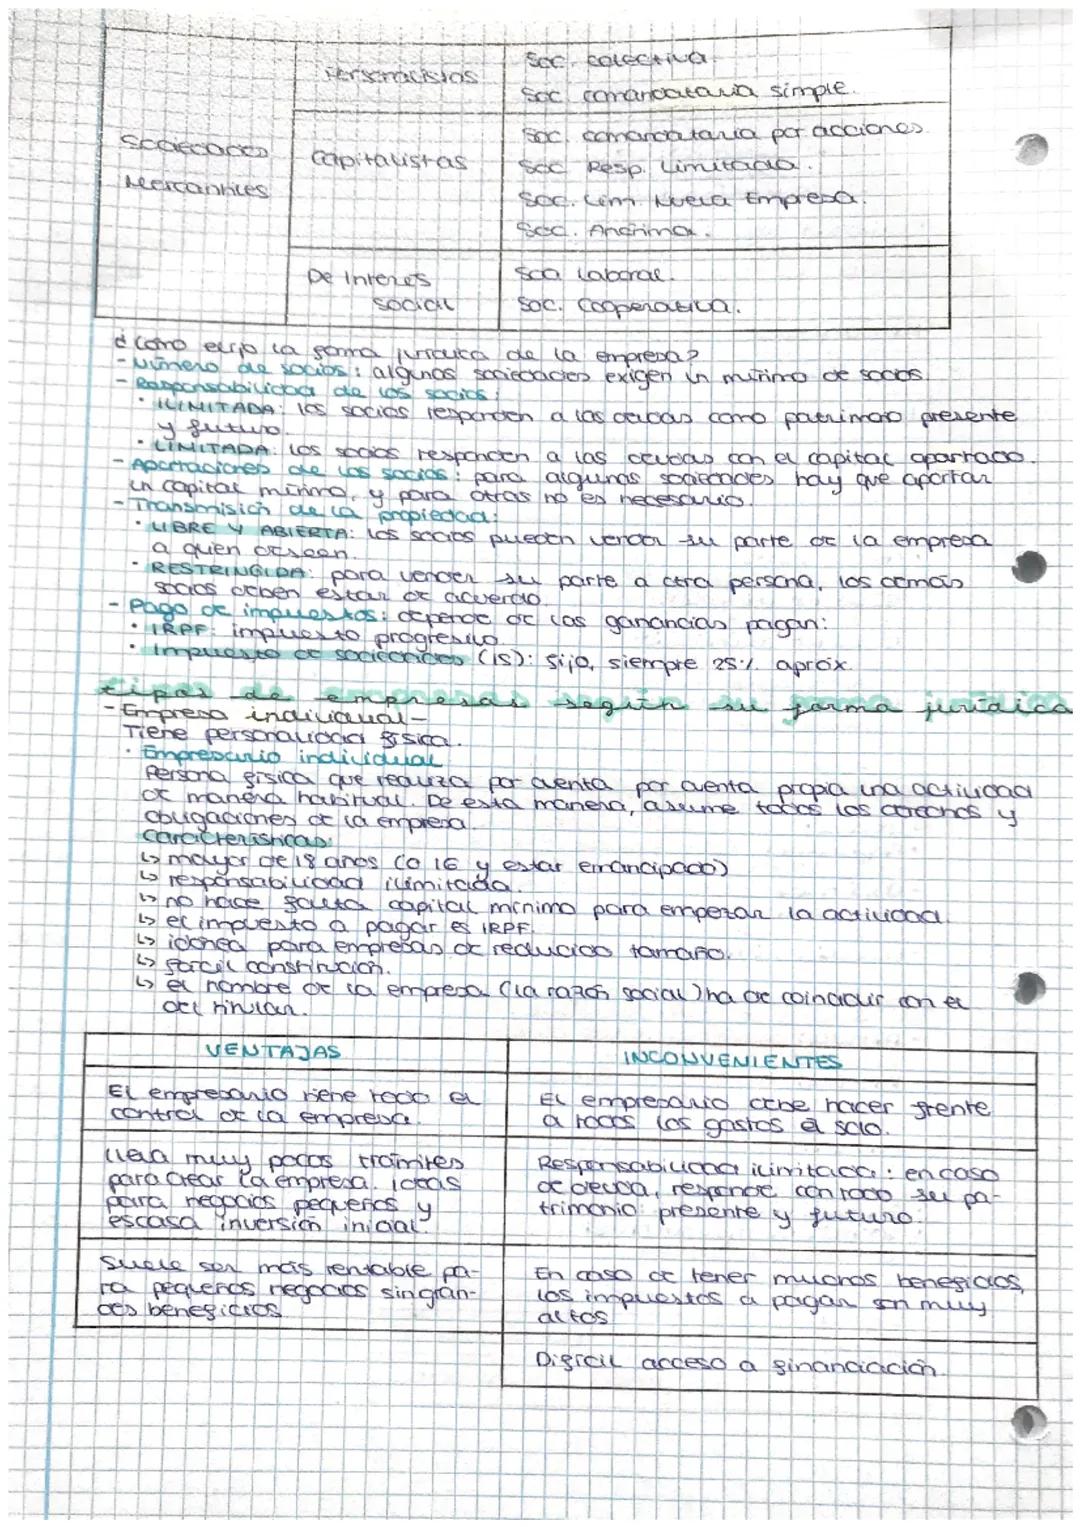 Sociedades
Mercantiles
Personalistas
Soc. colectiva
Soc. comanditaria simple.
Capitalistas
Soc. comanditaria por acciones.
Soc. Resp. Limitada.
Soc. Lim. Nueva Empresa.
Soc. Anónima.
De Interés
social
Soc. Laboral.
Soc. Cooperativa.
¿Cómo elijo la forma jurídica de la empresa?
- Número de socios: algunas sociedades exigen un mínimo de socios.
- Responsabilidad de los socios:
· ILIMITADA: los socios responden a las deudas como patrimonio presente
y futuro.
· LIMITADA: los socios responden a las deudas con el capital aportado.
- Aportaciones de los socios: para algunas sociedades hay que aportar
un capital mínimo, y para otras no es necesario.
- Transmisión de la propiedad:
· LIBRE Y ABIERTA: los socios pueden vender su parte de la empresa
a quien deseen.
· RESTRINGIDA: para vender su parte a otra persona, los demás
socios deben estar de acuerdo.
- Pago de impuestos: depende de las ganancias pagan:
· IRPF: impuesto progresivo.
· Impuesto de sociedades (IS): fijo, siempre 25% aprox.
tipos de empresas según su forma jurídica
- Empresa individual -
Tiene personalidad física.
· Empresario individual
Persona física que realiza por cuenta por cuenta propia una actividad
de manera habitual. De esta manera, asume todos los derechos y
obligaciones de la empresa.
Características:
↳ mayor de 18 años (o 16 y estar emancipado)
↳ responsabilidad ilimitada.
↳ no hace falta capital mínimo para empezar la actividad.
↳ el impuesto a pagar es IRPF.
↳ idónea para empresas de reducido tamaño.
↳ fácil constitución.
↳ el nombre de la empresa (la razón social) ha de coincidir con el
del titular.
VENTAJAS
INCONVENIENTES
El empresario tiene todo el
control de la empresa.
El empresario debe hacer frente
a todos los gastos él solo.
Lleva muy pocos trámites
para crear la empresa. Ideas
para negocios pequeños y
escasa inversión inicial.
Responsabilidad ilimitada: en caso
de deuda, responde con todo su pa-
trimonio: presente y futuro.
Suele ser más rentable pa-
ra pequeños negocios sin gran-
des beneficios
En caso de tener muchos beneficios,
los impuestos a pagar son muy
altos
Difícil acceso a financiación.